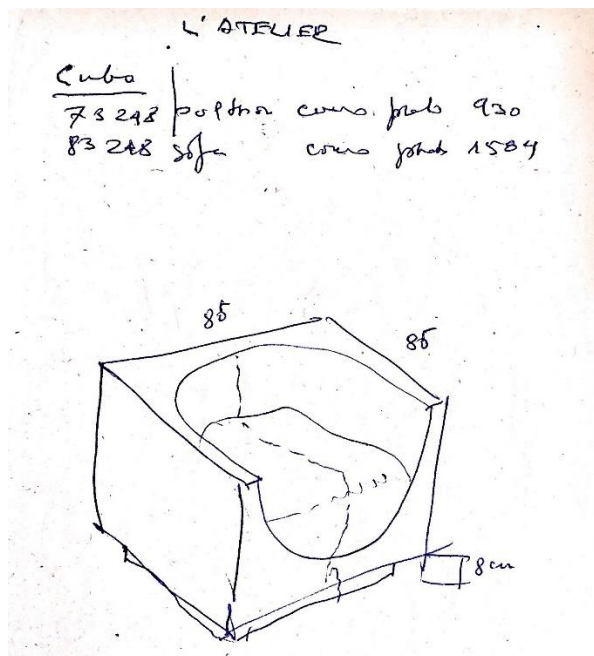 L'ATELIER
Cubo
73248 poltrona couro preto 930
83248 sofa couro preto 1584
85
85
8 cm